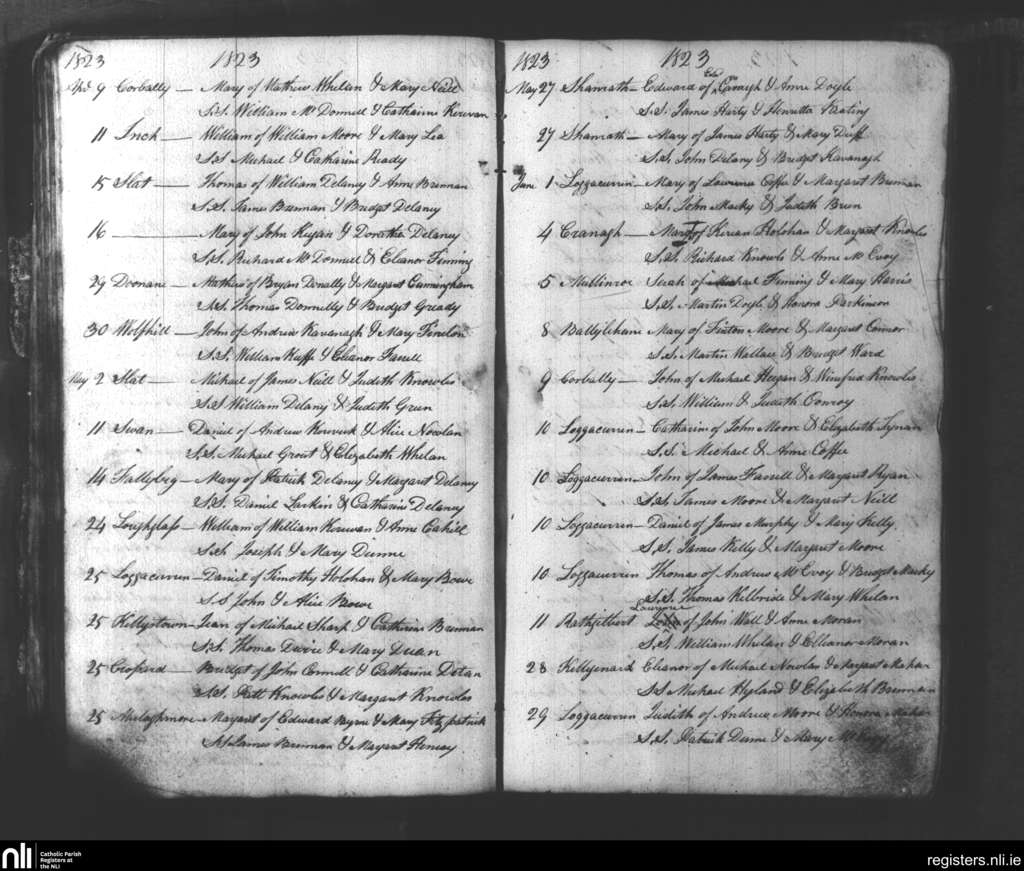 1823 1823
Apl 9 Corbally — Mary of Mathew Whelan & Mary Neill
S.S. William McDonnell & Catharine Kerevan
11 Inch — William of William Moore & Mary Lea
S.S Michael & Catharine Ready
15 Slat — Thomas of William Delany & Anne Brennan
S.S. James Brennan & Bridget Delaney
16 — Mary of John Keegan & Dorothea Delaney
S.S. Richard McDonnell & Eleanor Fleming
29 Doonane — Mathew of Bryan Donally & Margaret Cunningham
S.S. Thomas Donnelly & Bridget Gready
30 Wolfhill — John of Andrew Kavanagh & Mary Finelon
S.S. William & Eleanor Farrell
May 2 Slat — Michael of James Neill & Judith Knowles
S.S William Delany & Judith Green
11 Swan — Daniel of Andrew Kerwick & Alice Nowlan
S.S. Michael Grout & Elizabeth Whelan
14 Tallybeg — Mary of Patrick Delaney & Margaret Delaney
S.S. Daniel Larkin & Catharine Delaney
24 Loughglass — William of William Kerevan & Anne Cahill
S.S Joseph & Mary Dunne
25 Loggacurren — Daniel of Timothy Holohan & Mary Bowe
S.S John & Alice Bowe
25 Killystown — Jean of Michael Sharp & Catherine Brennan
S.S. Thomas & Mary Duan
25 Cropard — Bridget of John Connell & Catharine
S.S. Patt Knowles & Margaret Knowles
25 — Margaret of Edward Byrne & Mary Fitzpatrick
S.S James Brennan & Margaret
1823 1823
May 27 Shanrath — Edward of Edw Cavnagh & Anne Doyle
S.S. James Harty & Henrietta Keating
27 Shanrath — Mary of James Harty & Mary Duff
S.S. John Delany & Bridget Kavanagh
June 1 Loggacurren — Mary of Lawrence Coffee & Margaret Brennan
S.S. John Macky & Judith Breen
4 Cranagh — Margt of Kieran Holohan & Margaret Knowles
S.S. Richard Knowls & Anne McEvoy
5 Mullinroe Sarah of Michael Fleming & Mary Harris
S.S. Martin Doyle & Honora Parkinson
8 Ballylehane Mary of Finton Moore & Margaret Connor
S.S. Martin Wallace & Bridget Ward
9 Corbally — John of Michael Keegan & Winefred Knowles
S.S. William & Judith Conroy
10 Loggacurren — Catharine of John Moore & Elizabeth Lynan
S.S. Michael & Anne Coffee
10 Loggacurren John of James Farrell & Margaret Ryan
S.S James Moore & Margaret Neill
10 Loggacurren — Daniel of James Murphy & Mary Kelly
S.S. James Kelly & Margaret Moore
10 Loggacurren Thomas of Andrew McEvoy & Bridget Macky
S.S. Thomas Kilbride & Mary Whelan
11 Rathgilbert Lawrence of John Wall & Anne Moran
S.S. William Whelan & Elleanor Moran
28 Killygenard Eleanor of Michael Nowlan & Margaret Mahar
S.S Michael Hyland & Elizabeth Brennan
29 Loggacurren Judith of Andrew Moore & Honora
S.S. Patrick Dunne & Mary
nli Catholic Parish
Registers at
the NLI
registers.nli.ie